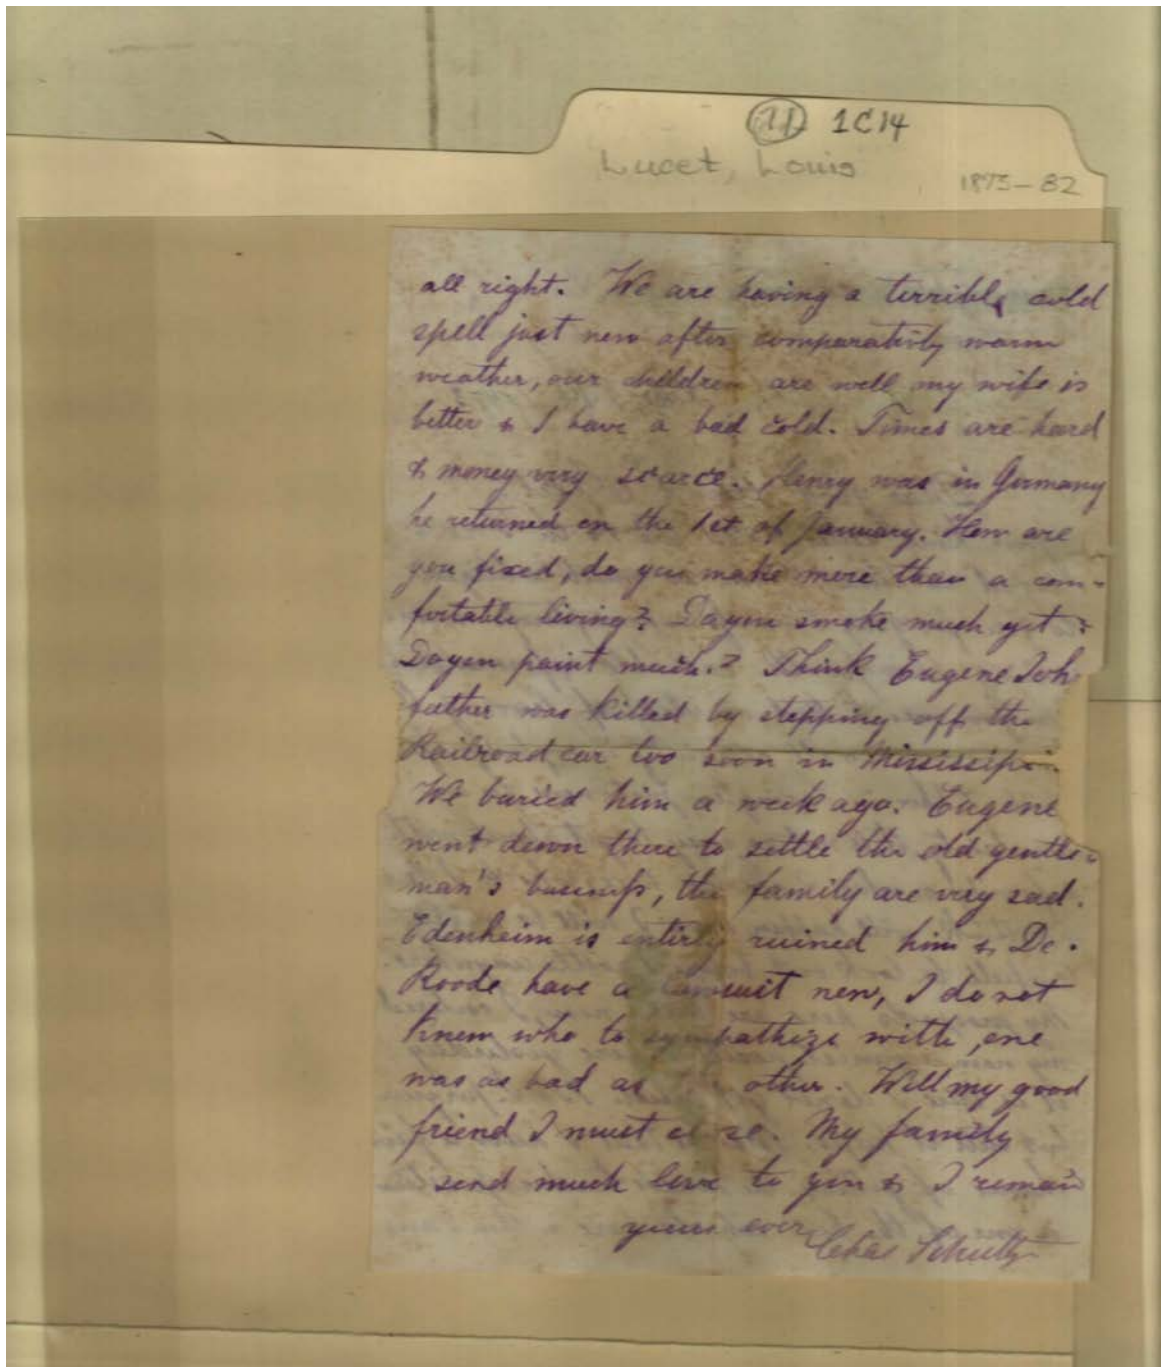 1C14
Lucet, Louis
1875-82
all right. We are having a terrible cold
spell just now after comparativly warm
weather, our children are well my wife is
better & I have a bad cold. Times are hard
& money very scarce. Henry was in Germany
he returned on the 1st of January. How are
you fixed, do you make more than a com-
fortable living? Do you smoke much yet?
Do you paint much? Think Eugene
father was killed by stepping off the
Railroad car too soon in Mississippi.
We buried him a week ago. Eugene
went down there to settle the old gentle-
man's business, the family are very sad.
Edenheim is entirly ruined him & De.
Roode have a lawsuit now, I do not
know who to sympathize with, one
was as bad as other. Well my good
friend I must close. My family
send much love to you & I remain
yours ever
Chas Schultz